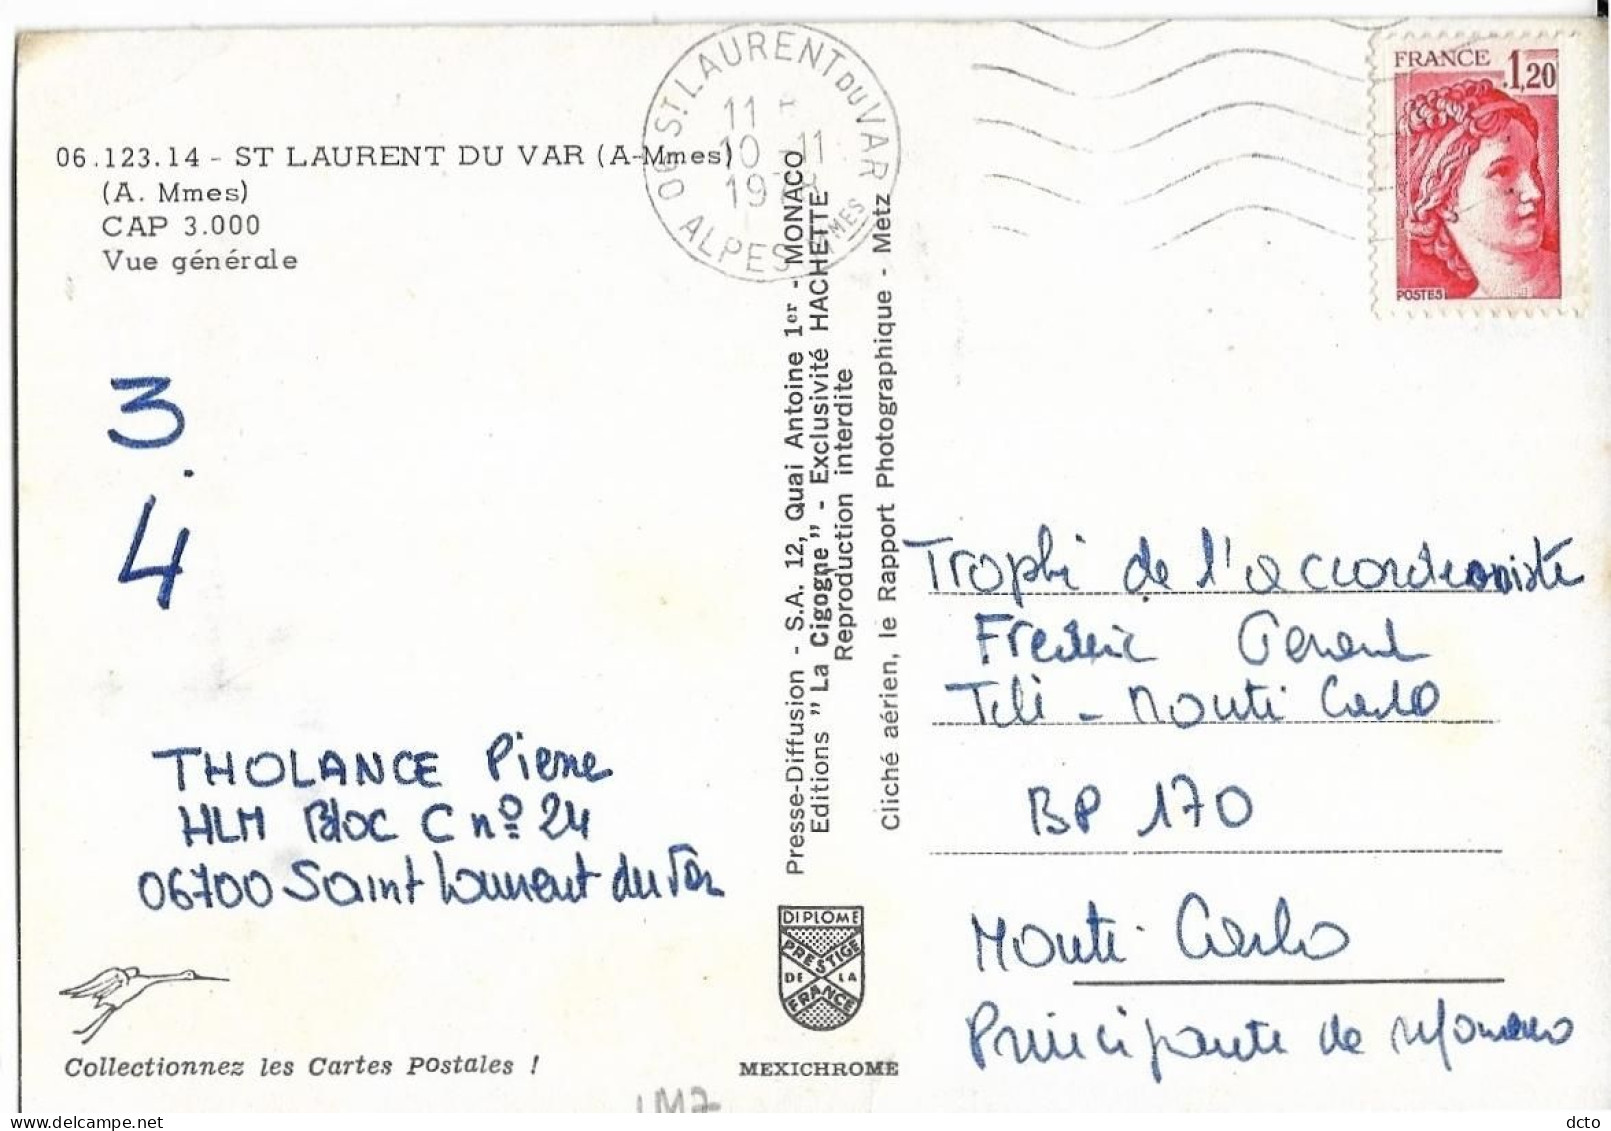 06 ST LAURENT DU VAR
11
10 -11
ALPES MMES
FRANCE 1,20
POSTES
06.123.14 - ST LAURENT DU VAR (A-Mmes)
(A. Mmes)
CAP 3.000
Vue générale
3.
4
THOLANCE Pierre
HLM Bloc C nº 24
06700 Saint Laurent du Var
Collectionnez les Cartes Postales !
Presse-Diffusion - S.A. 12, Quai Antoine 1er - MONACO
Editions "La Cigogne" - Exclusivité HACHETTE
Reproduction interdite
Cliché aérien, le Rapport Photographique - Metz
DIPLOME
PRESTIGE
DE LA
FRANCE
MEXICHROME
Trophé de l'accordeoniste
Frederic
Télé - Monté Carlo
BP 170
Monté-Carlo
Principauté de Monaco
dcto